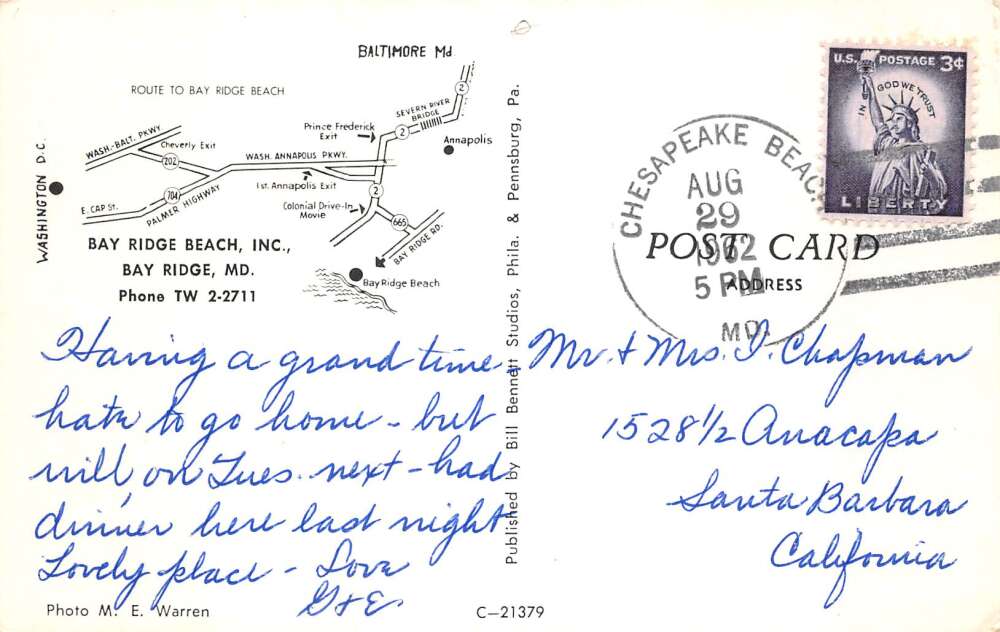 BALTIMORE Md.
ROUTE TO BAY RIDGE BEACH
WASHINGTON D.C.
WASH.-BALT. PKWY
Cheverly Exit
202
704
E. CAP ST.
PALMER HIGHWAY
WASH. ANNAPOLIS PKWY.
1st. Annapolis Exit
Prince Frederick
Exit
2
2
SEVERN RIVER
BRIDGE
Annapolis
2
Colonial Drive-In
Movie
665
BAY RIDGE RD.
Bay Ridge Beach
BAY RIDGE BEACH, INC.,
BAY RIDGE, MD.
Phone TW 2-2711
Having a grand time,
hate to go home - but
will, on Tues. next - had
dinner here last night
Lovely place - Love
G & E.
Photo M. E. Warren
C-21379
Published by Bill Bennett Studios, Phila. & Pennsburg, Pa.
U.S. POSTAGE 3¢
IN GOD WE TRUST
LIBERTY
CHESAPEAKE BEACH
AUG
29
1962
5 PM
MD.
POST CARD
ADDRESS
Mr. & Mrs. I. Chapman
1528 1/2 Anacapa
Santa Barbara
California